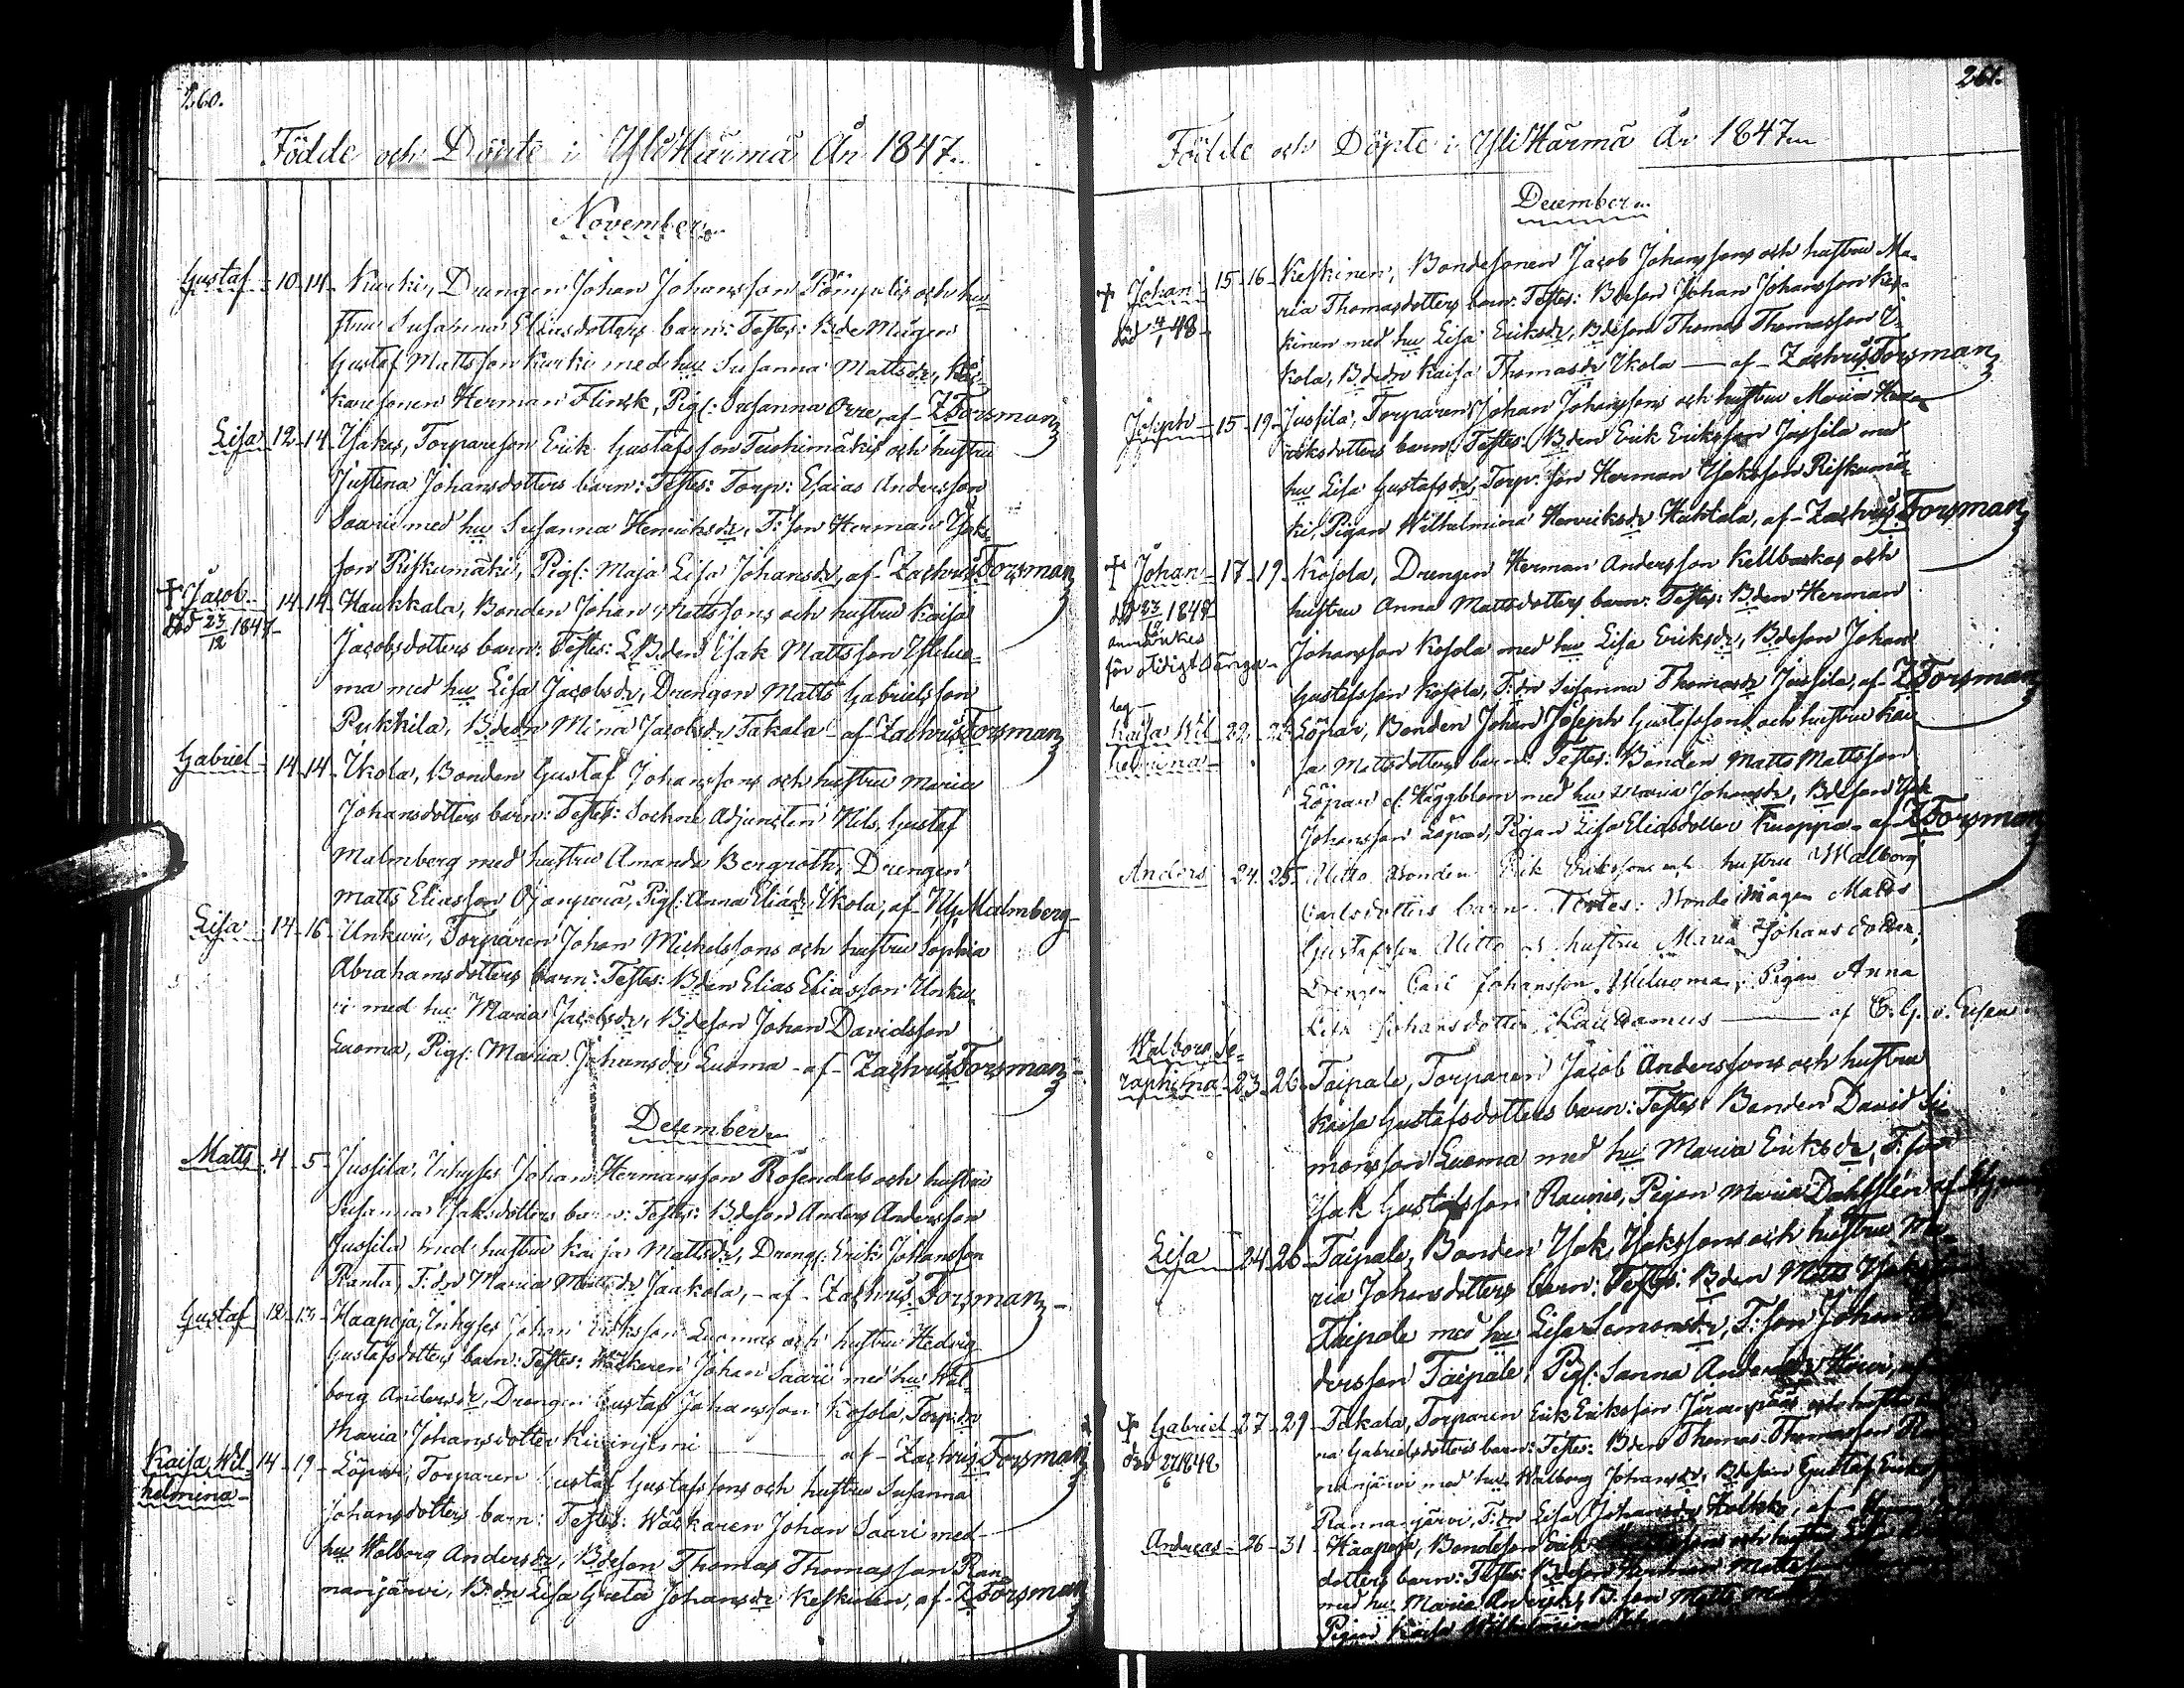 260.
Födde och Döpte i YliHärmä År 1847.
November
Gustaf 10-14- Kurki, Drängen Johan Johansson Pömpelis och hu-
strus Susanna Eliædotters barn: Testes: Bdemågen
Gustaf Mattsson Kurki med hu Susanna Mattsdr,
karesonen Herman Flinck, Pig: Susanna Orre, af ZForsman
Lisa 12-14- Ysakes, Torpareson Erik Gustafsson Tuohimäkis och hustru
Justina Johansdotters barn: Testes: Torp: Esaias Andersson
Saari med hu Susanna Henriksdr, T:son Herman Isaks-
son Riskumäki, Pig: Maja Lisa Johansdr, af Zachris Forsman
+ Jacob 14-14- Haukkala, Bonden Johan Mattssons och hustru Kaisa
död 23/12 1847-
Jacobsdotters barn: Testes: Bden Isak Mattsson Ylilua-
ma med hu Lisa Jacobsdr, Drängen Matts Gabrielsson
Pukkila, Bdedr Mina Jacobsdr Takala - af Zachris Forsman
Gabriel 14-14- Ykola, Bonden Gustaf Johanssons och hustru Maria
Johansdotters barn: Testes: Sockne Adjuncten Nils Gustaf
Malmberg med hustru Amanda Bergroth, Drängen
Matts Eliasson Ojanperä, Pig: Anna Eliædr Ykola, af NG Malmberg
Lisa 14-16- Unkuri, Torparen Johan Mickelssons och hustru Sophia
Abrahamsdotters barn: Testes: Bden Elias Eliasson Unku-
ri med hu Maria Jacobsdr, Bdeson Johan Davidsson
Luoma, Pig: Maria Johansdr Luoma - af - Zachris Forsman
December
Matts 4-5- Jussila, Inhyses Johan Hermansson Rosendals och hustru
Susanna Isaksdotters barn: Testes: Bdeson Anders Andersson
Jussila med hustru Kaisa Mattsdr, Dräng: Erik Johansson
Ranta, T:dr Maria Mattsdr Jaakola, - af - Zachris Forsman
Gustaf 12-13- Haapoja, Inhyses Johan Eriksson Luomas och hustru Hedvig
Gustafsdotters barn: Testes: Wäckaren Johan Saari med hu Wal-
borg Andersdr, Drängen Gustaf Johansson Kosola, Torp:dr
Maria Johansdotter Kivinjemi af - Zachris Forsman
Kaisa Wil- 14-19- Löpari, Torparen Gustaf Gustafssons och hustru Susanna
helmina
Johansdotters barn: Testes: Wäckaren Johan Saari med
hu Walborg Andersdr, Bdeson Thomas Thomasson Ran-
nanjärvi, B:dr Lisa Greta Johansdr Keskinen, af ZForsman
261.
Födde och Döpte i YliHärmä År 1847
December
+ Johan 15-16- Keskinen, Bondesonen Jacob Johanssons och hustru Ma-
död 4/1 48-
ria Thomasdotters barn: Testes: Bdeson Johan Johansson Kes-
kinen med hu Lisa Eriksdr, Bdeson Thomas Thomasson Y-
kola, Bdedr Kaisa Thomasdr Ykola - af - Zachris Forsman
Joseph 15-19- Jussila, Torparen Johan Johanssons och hustru Maria Hen-
riksdotters barn: Testes: Bden Erik Eriksson Jussila med
hu Lisa Gustafsdr, Torp: son Herman Isaksson Riskumä-
ki, Pigan Wilhelmina Henriksdr Huhtala, af - Zachris Forsman
+ Johan 17-19- Kosola, Drengen Herman Andersson Kellbackas och
hustru Anna Mattsdotters barn: Testes: Bden Herman
Johansson Kosola med hu Lisa Eriksdr, Bdeson Johan
Gustafsson Kosola, T:dr Susanna Thomasdr Jussila, af - ZForsman
Kaisa Wil- 22- Löpar, Bonden Johan Joseph Gustafssons och hustru Kai-
helmina
sa Mattsdotters barn: Testes: Bonden Matts Mattsson
Löpari el: Häggblom med hu Maria Johansdr, Bdeson Isak
Johansson Löpari, Pigan Lisa Eliasdotter Knuppa - af ZForsman
Anders 24-25- Uitto Bonden Erik Erikssons och hustru Walborg
Carlsdotters barn. Testes: Bondemågen Matts
Gustafsson Uitto och hustru Maria Johansdotter,
Drengen Carl Johansson Yliluoma, Pigan Anna
Lisa Johansdotter af
Walborg Se-
raphina 23-26- Taipale, Torparen Jacob Anderssons och hustru
Kaisa Gustafsdotters barn: Testes: Bonden David Si-
monsson Luoma med hu Maria Eriksdr, T:son
Isak Gustafsson Raunio, Pigan Maria
Lisa 24-26- Taipale, Bonden Isak Isakssons och hustru Ma-
ria Johansdotters barn: Testes: Bden Matts
Taipale med hu Lisa Simonsdr, T:son Johan An-
dersson Taipale, Pig: Sanna Andersdr
+ Gabriel 27-29- Takala, Torparen Erik Eriksson
na Gabrielsdotters barn: Testes: Bden Thomas Thomasson Ran-
nanjärvi med hu Walborg Johansdr, Bdeson Gustaf
Rannanjärvi, T:dr Lisa Johansdr
Andreas 26-31 Haapoja, Bondeson
dotters barn: Testes: Bdeson Herman Mattsson
med hu Maria Andersdr, B:son Matts
Pigan Kaisa Wilhelmina